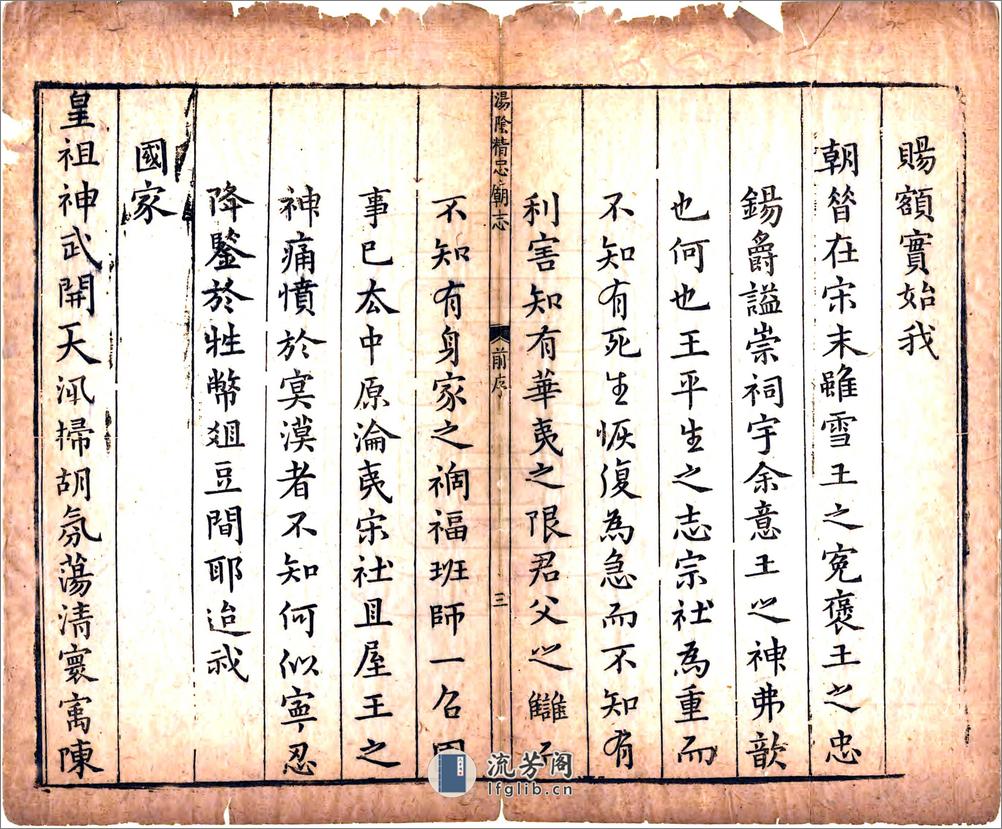 賜額實始我
朝昝在宋末雖雪王之寃褒王之忠
錫爵謚崇祠宇余意王之神弗歆
也何也王平生之志宗社為重而
不知有死生恢復為急而不知有
利害知有華夷之限君父之讎而
湯陰精忠廟志
前序
三
不知有身家之禍福班師一召國
事已去中原淪夷宋社且屋王之
神痛憤於冥漠者不知何似寧忍
降鑒於牲幣爼豆間耶迨我
國家
皇祖神武開天汛掃胡氛蕩清寰㝢陳
流芳阁
lfglib.cn